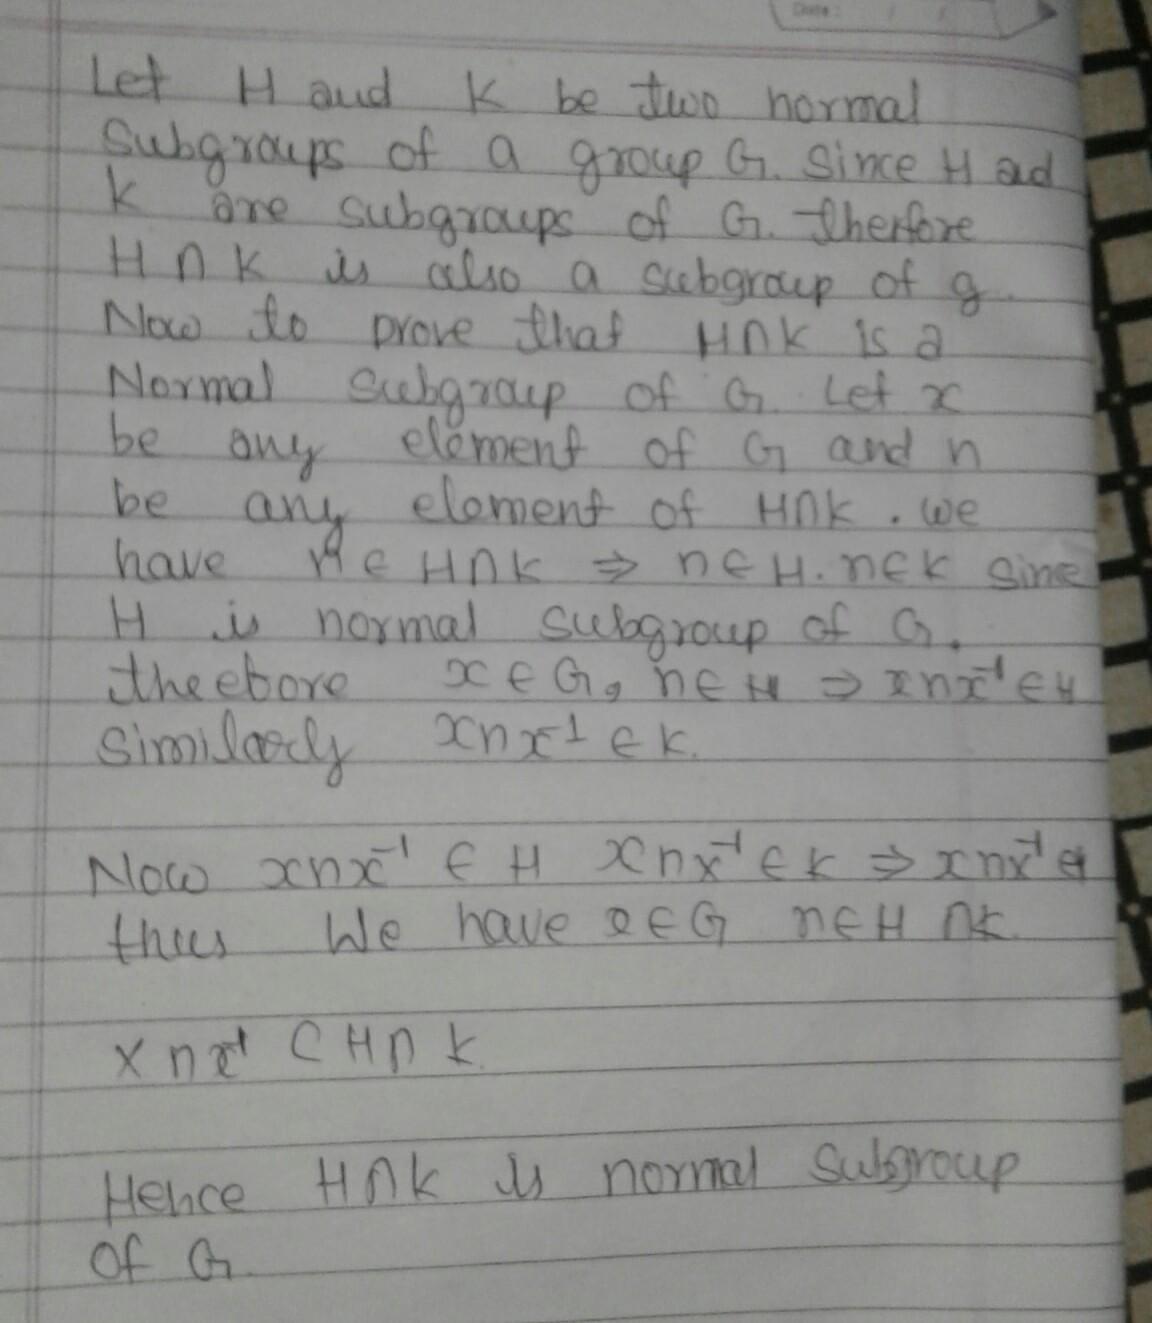 Date:
Let H and K be two normal
Subgroups of a group G. Since H ad
K are subgroups of G. therfore
H ∩ K is also a subgroup of g.
Now to prove that H∩K is a
Normal Subgroup of G. Let x
be any element of G and n
be any element of H∩K. we
have n ∈ H∩K ⇒ n∈H. n∈K sine
H is normal subgroup of G.
theebore x ∈ G, n∈H ⇒ xnx⁻¹ ∈ H
Similarly xnx⁻¹ ∈ K.
Now xnx⁻¹ ∈ H xnx⁻¹ ∈ K ⇒ xnx⁻¹ ∈
thus We have x∈G n∈H ∩K.
x n x⁻¹ ⊂ H∩ K.
Hence H∩K is normal Subgroup
Of G.